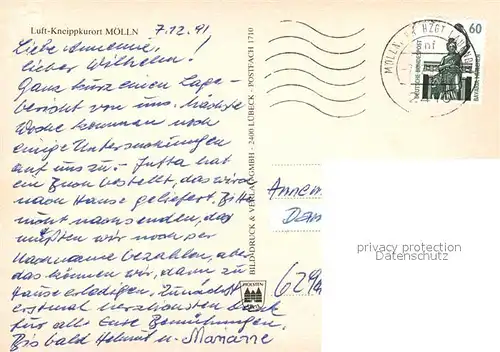 Luft-Kneippkurort MÖLLN
7.12.91
Liebe Annemie,
lieber Wilhelm!
Ganz kurz einen Lage-
bericht von uns. Nächste
Woche kommen noch
einige Untersuchungen
auf uns zu. Jutta hat
ein Buch bestellt, das wird
nach Hause geliefert. Bitte
nicht nachsenden, das
müßten wir noch per
Nachnahme bezahlen, aber
das können wir, dann zu
Hause erledigen. Zunächst
erstmal herzlichsten Dank
für alle Eure Bemühungen.
Bis bald Helmut u. Marianne
BILD/DRUCK & VERLAG GMBH - 2400 LÜBECK - POSTFACH 1710
HOLSTEN
MÖLLN
60
DEUTSCHE BUNDESPOST
Annem
Dam
629
privacy protection
Datenschutz